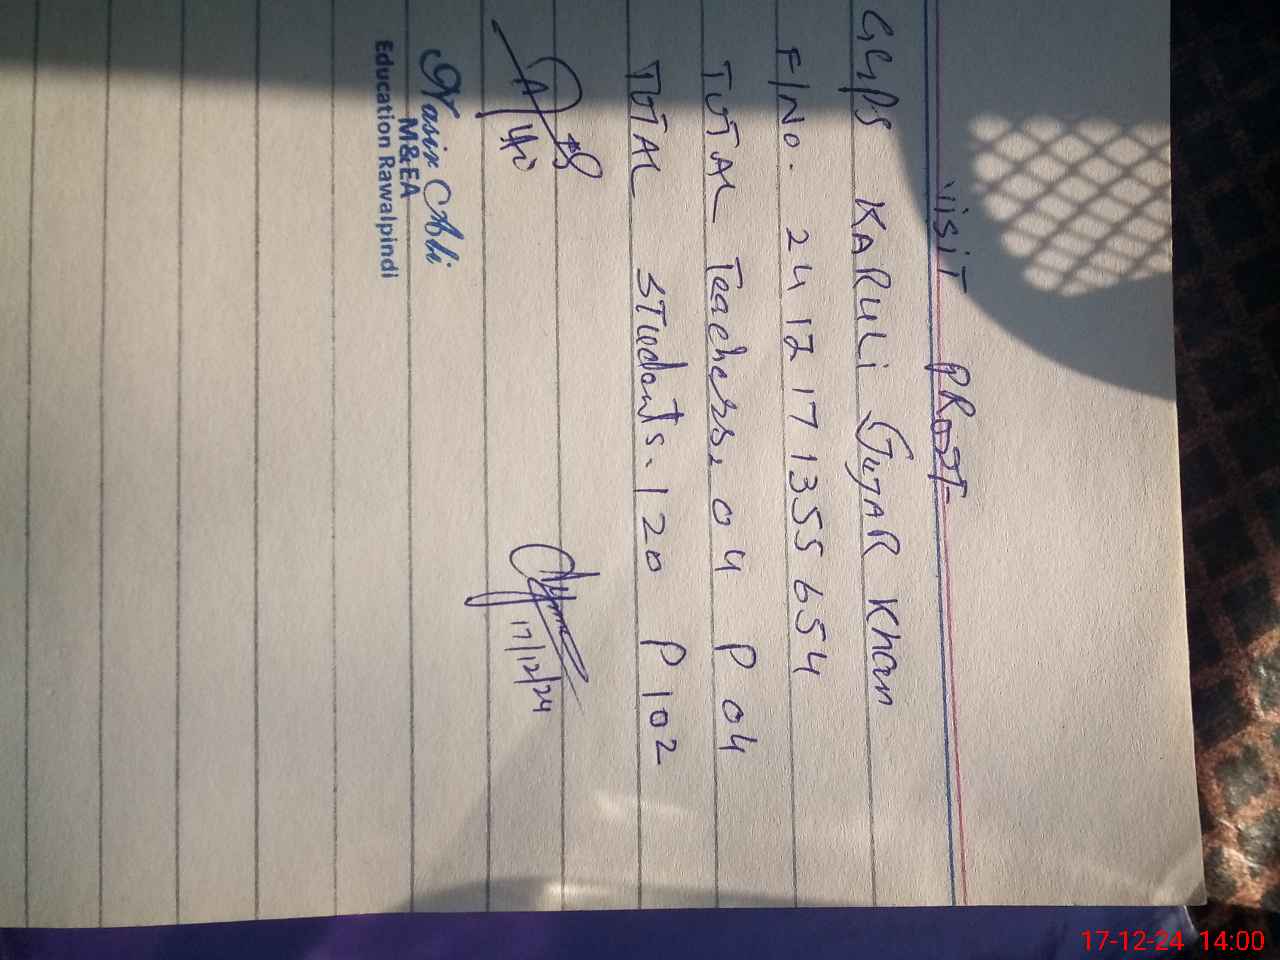 VisiT PRooT
GGPS KARULI GUJAR Khan
F/No. 24 12 17 1355 654
TOTAL Teachers. 04 P 04
TOTAL STudents. 120 P 102
17/12/24
Nasir Ali
M&EA
Education Rawalpindi
17-12-24 14:00